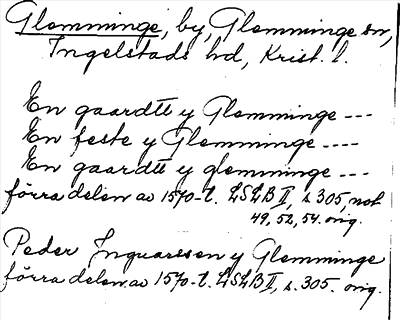 Glemminge, by, Glemminge sn,
Ingelstads hd, Krist. l.
En gaardtt y Glemminge ---
En feste y Glemminge ----
En gaardtt y glemminge ----
förra delen av 1570-t. LSLB II, s. 305, not
49, 52, 54. orig.
Peder Inguarssen y Glemminge
förra delen av 1570-t. LSLB II, s. 305. orig.